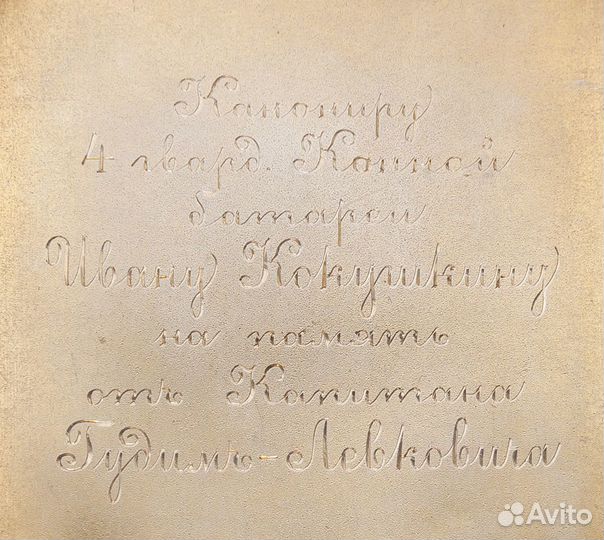 Канониру
4 гвард. Конной
батареи
Ивану Кокушкину
на память
отъ Капитана
Гудимъ-Левковича
Avito